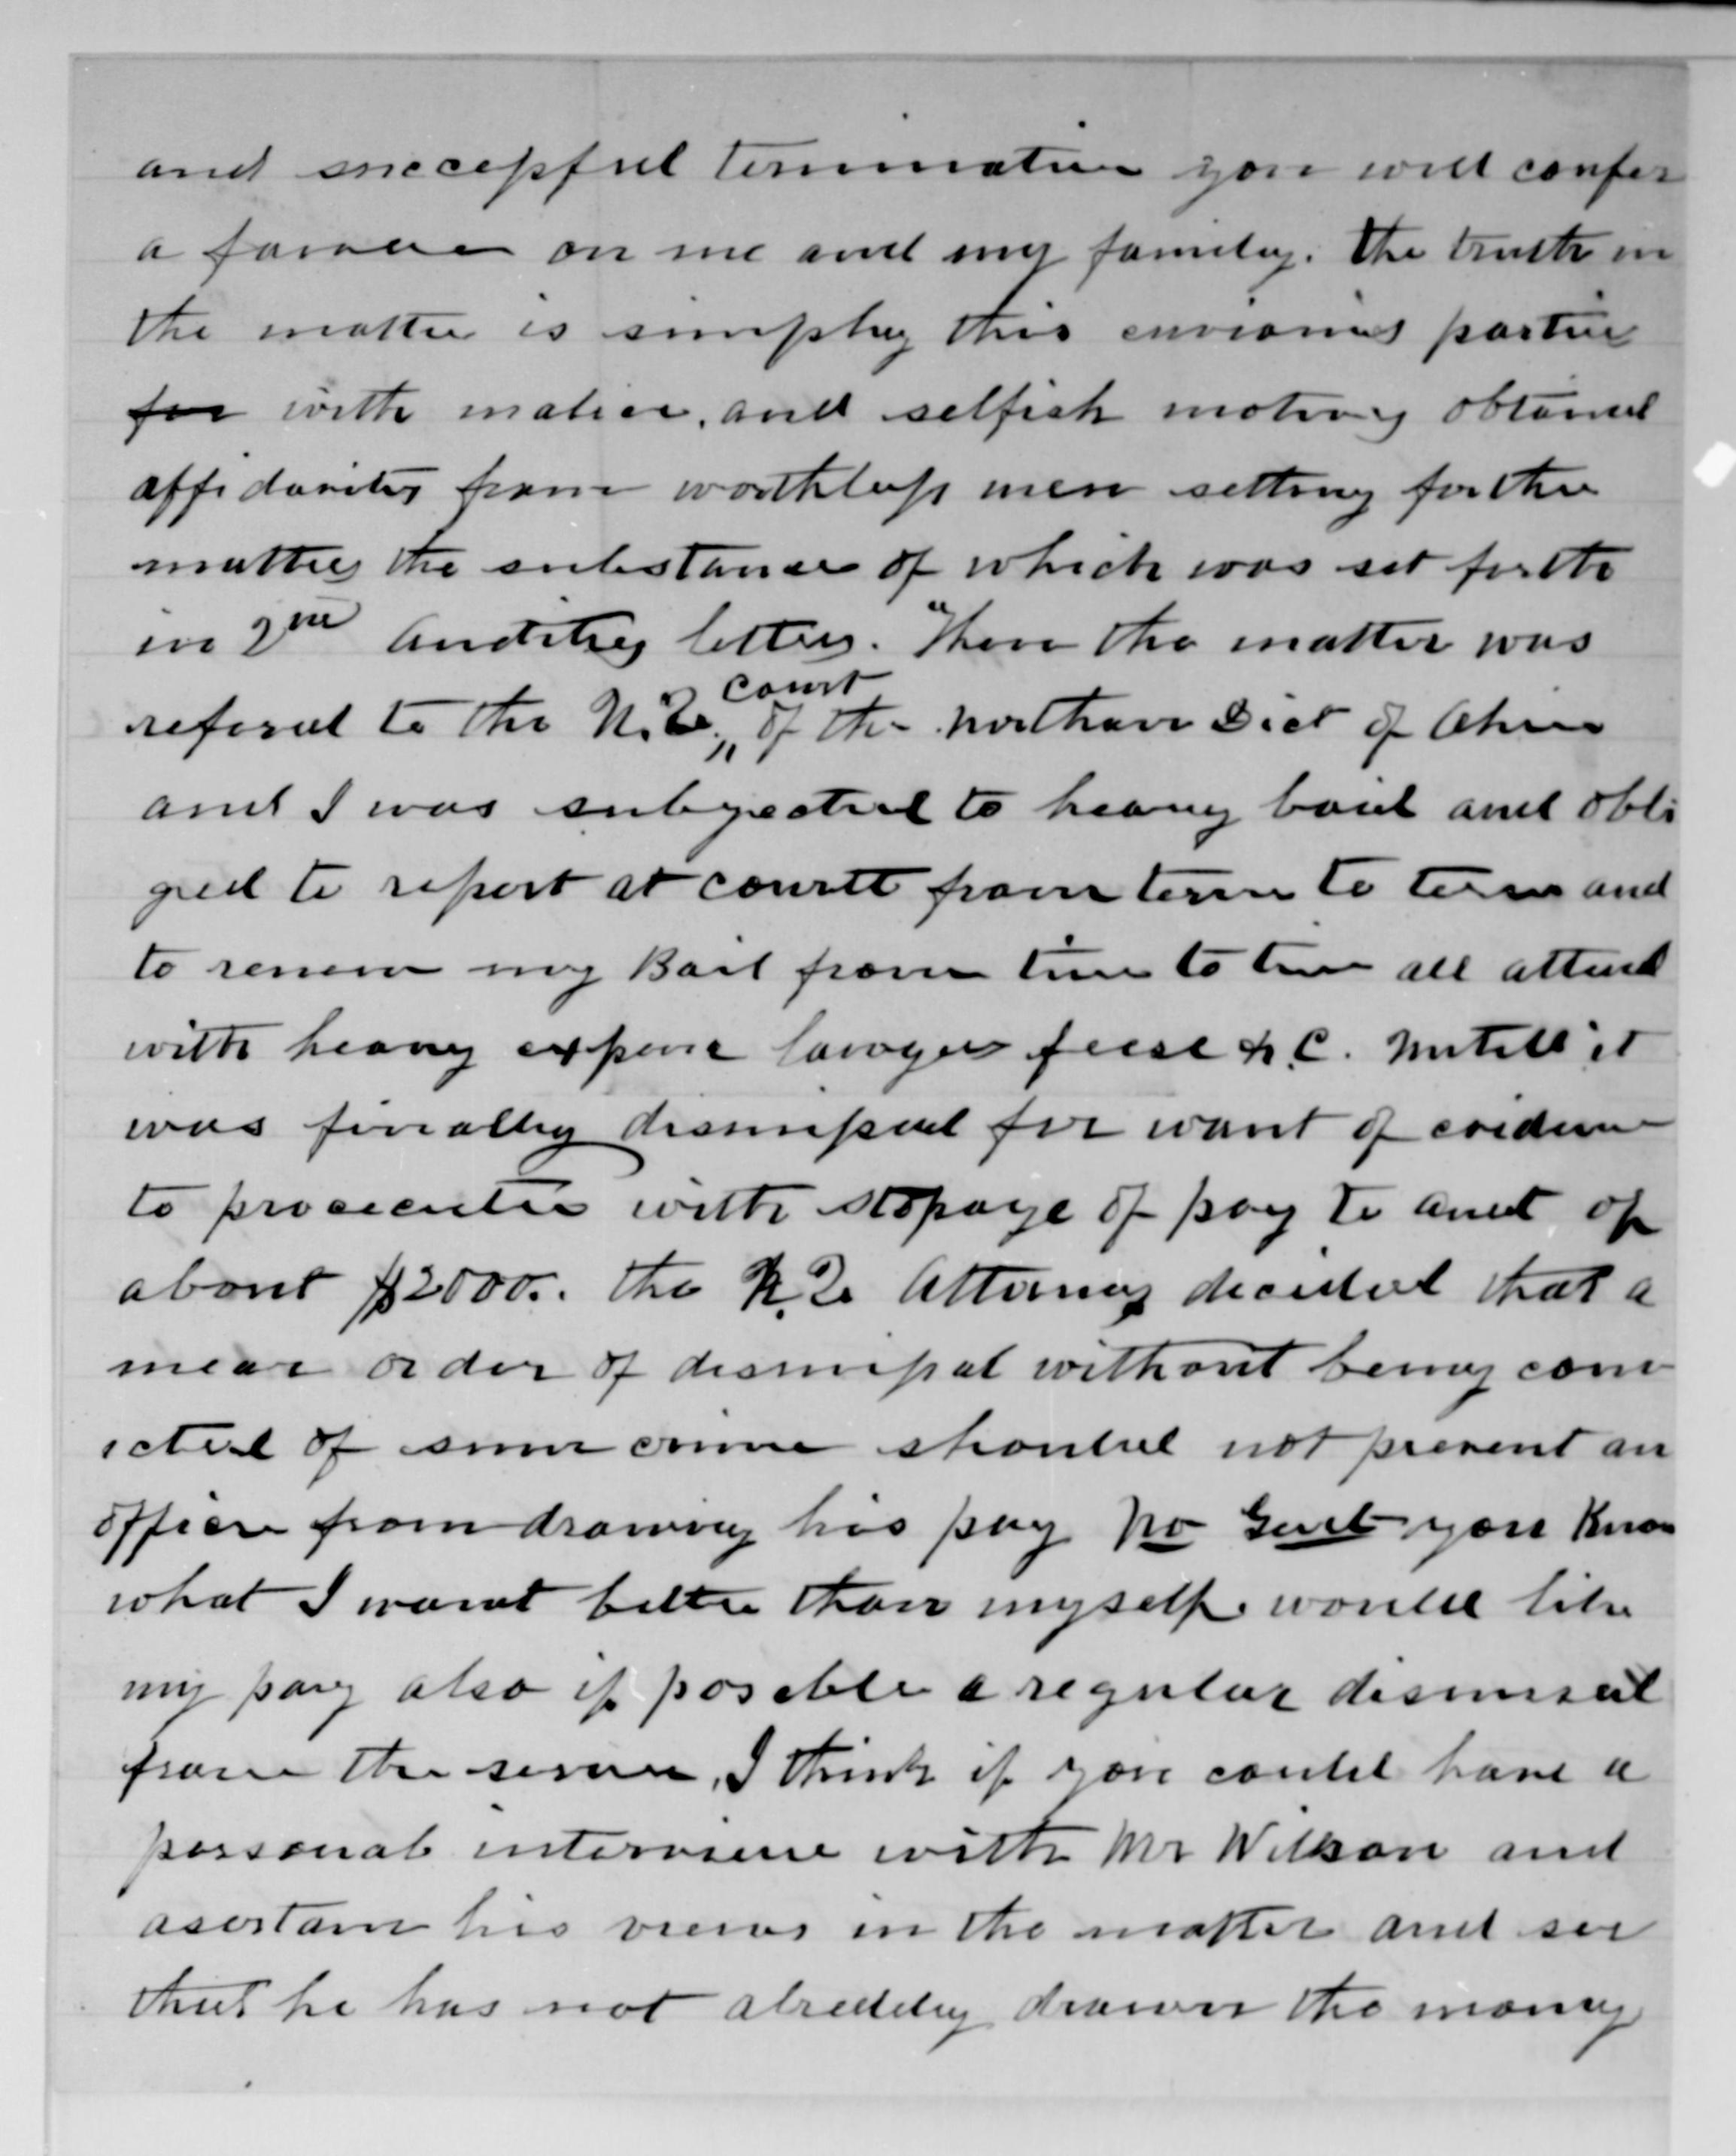 and successful termination you will confer
a favour on me and my family. The truth in
the matter is simply this envious parties
for with malice, and selfish motives obtained
affidavits from worthless men setting forth
matters the substance of which was set forth
in 2nd Auditors letters. Then the matter was
refered to the U.S. court of the Northern Dict of Ohio
and I was subjected to heavy bail and obli
ged to report at courtt from term to term and
to renew my Bail from time to time all attend
with heavy expense lawyers feese &.C. untill it
was finally dismissed for want of evidence
to prosecute with stopage of pay to amt of
about $2000.. the U.S. Attorney decided that a
mear order of dismissal without being conv
icted of some crime should not prevent an
officer from drawing his pay No Genl you know
what I want better than myself. would like
my pay also if posible a regular dismissal
from the service, I think if you could have a
personal interview with Mr Wilson and
asertain his views in the matter and see
that he has not alreddy drawn the money